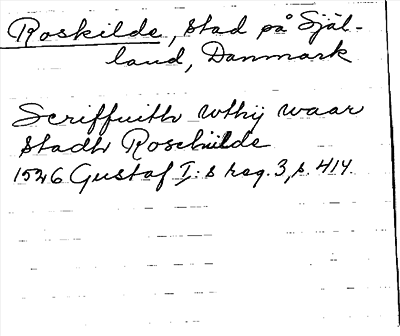 Roskilde, stad på Själ-
land, Danmark
Scriffuith wthij waar
stadh Roschilde
1526 Gustaf I:s reg. 3, s. 414.